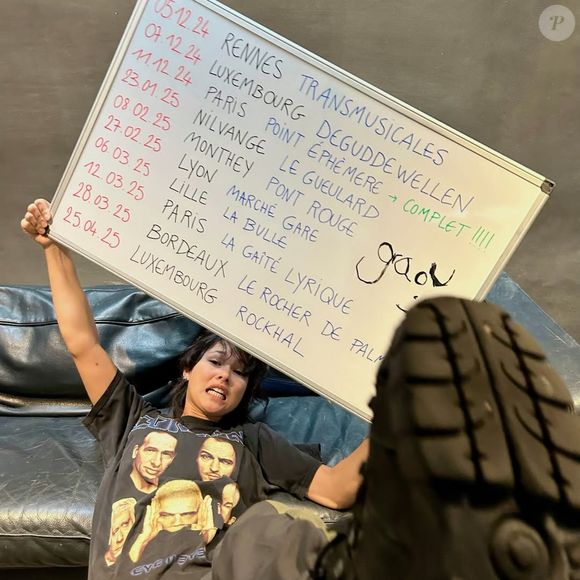 05.12.24 RENNES TRANSMUSICALES
07.12.24 LUXEMBOURG DEGUDDEWELLEN
11.12.24 PARIS POINT ÉPHÉMÈRE → COMPLET !!!!
23.01.25 NILVANGE LE GUEULARD
08.02.25 MONTHEY PONT ROUGE
27.02.25 LYON MARCHÉ GARE
06.03.25 LILLE LA BULLE
12.03.25 PARIS LA GAÎTÉ LYRIQUE
28.03.25 BORDEAUX LE ROCHER DE PALM
25.04.25 LUXEMBOURG ROCKHAL
P